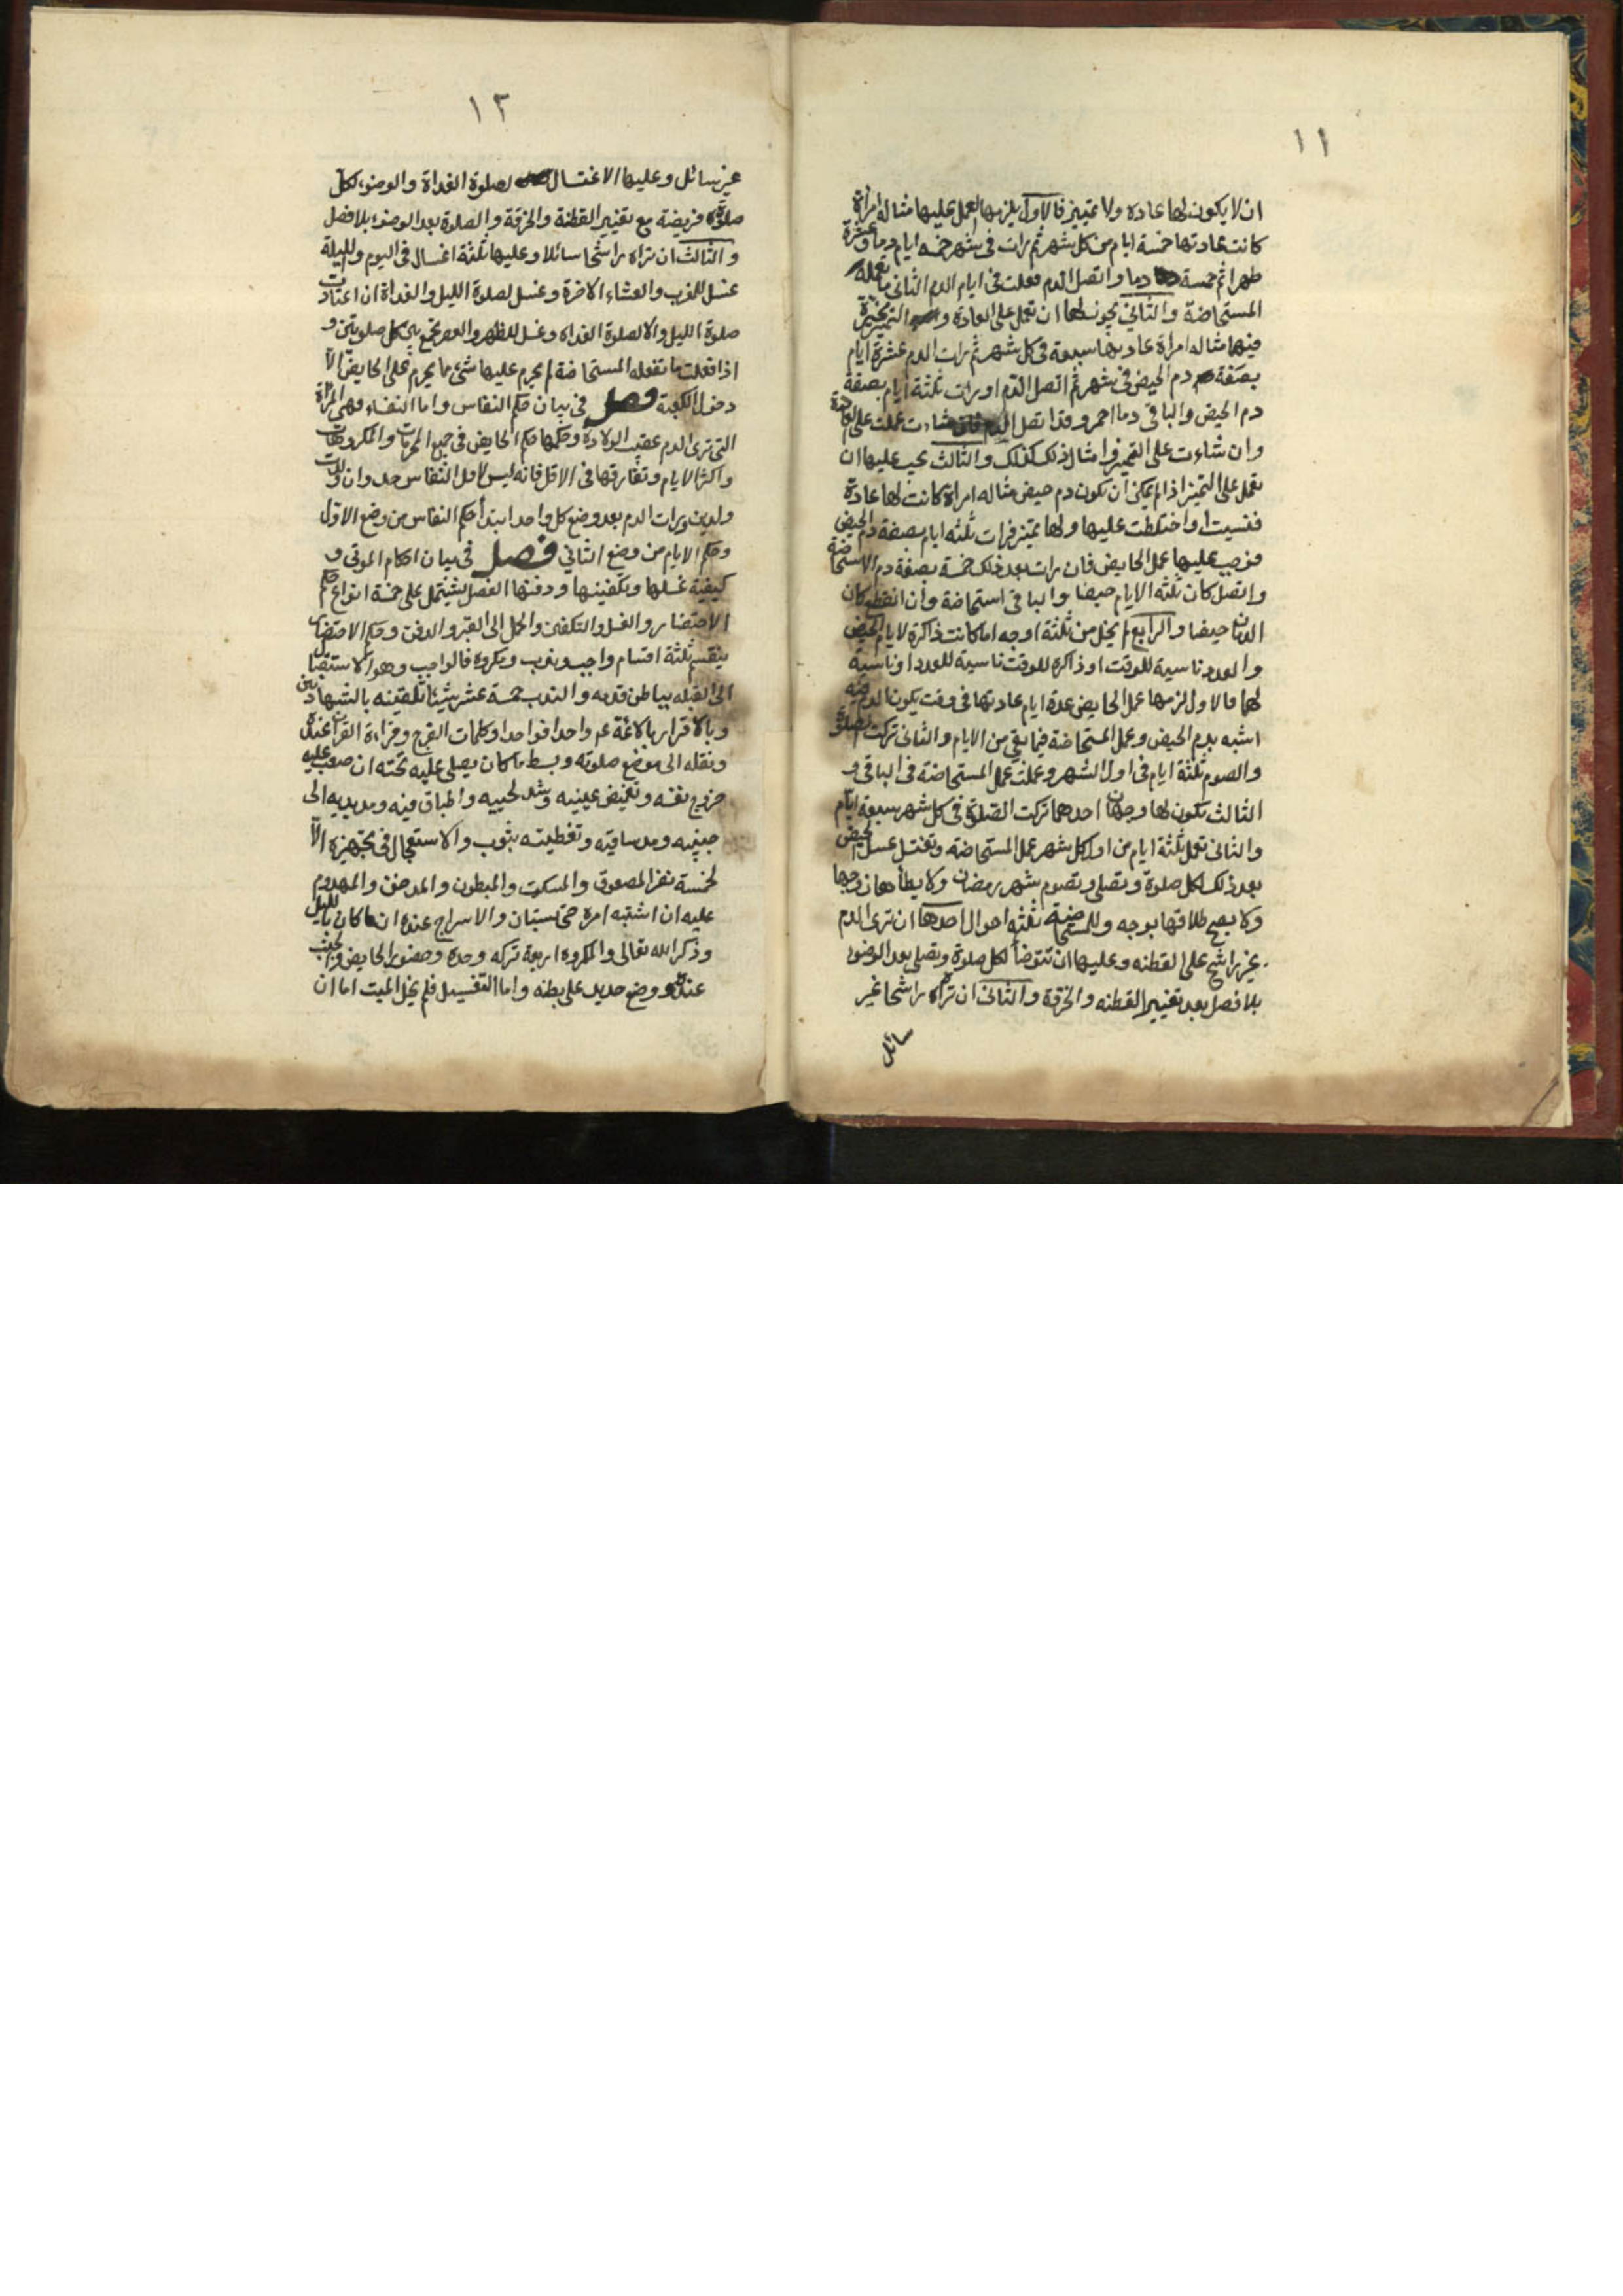 ١١
ان لا يكون لها عادة ولا تمييز فالاول يلزمها العمل عليها مثاله امراة
كانت عادتها خمسة ايام من كل شهر ثم رات فى شهر خمسة ايام دما وعشرة
طهرا ثم خمسة دما واتصل الدم فعلت فى ايام الدم الثانى ما تعمله
المستحاضة والثانى يجوز لها ان تعمل على العادة و التمييز مخيرة
فيهما مثاله امراة عادتها سبعة فى كل شهر ثم رات الدم عشرة ايام
بصفة دم الحيض فى شهر ثم اتصل الدم او رات ثلثة ايام بصفة
دم الحيض والباقى دما احمر وقد اتصل الدم فان شاءت عملت على العادة
وان شاءت على التمييز وامثال ذلك كذلك والثالث يجب عليها ان
تعمل على التميز اذا لم يمكن ان يكون دم حيض مثاله امراة كانت لها عادة
فنسيت او اختلطت عليها ولها تميز فرات ثلثه ايام بصفة دم الحيض
فوجب عليها عمل الحايض فان رات بعد ذلك خمسة بصفة دم الاستحاضة
واتصل كان ثلثه الايام حيضا والباقى استحاضة وان انقطع كان
الدمان حيضا والرابع لم يخل من ثلثة اوجه اما كانت ذاكرة لايام الحيض
والعدد ناسية للوقت او ذاكره للوقت ناسية للعدد او ناسية
لهما فالاول لزمها عمل الحايض عدة ايام عادتها فى وقت يكون الدم فيه
اشبه بدم الحيض وعمل المستحاضة فيما بقى من الايام والثانى تركت الصلوة
والصوم ثلثة ايام فى اول الشهر وعملت عمل المستحاضة فى الباقى و
الثالث تكون لها وجهان احدهما تركت الصلوة فى كل شهر سبعة ايام
والثانى تعمل ثلثة ايام من اول كل شهر عمل المستحاضة وتغتسل غسل الحيض
بعد ذلك لكل صلوة وتصلى وتصوم شهر رمضان ولا يطأها زوجها
ولا يصح طلاقها بوجه وللمستحاضة ثلثة احوال احدها ان ترى الدم
غير راشح على القطنه وعليها ان تتوضأ لكل صلوة وتصلى بعد الوضوء
بلا فصل بعد تغيير القطنه والخرقة والثانى ان تراه راشحا غير
سائل
١٢
غير سائل وعليها الاغتسال لصلوة الغداة والوضوء لكل
صلوة فريضة مع تغيير القطنة والخرقة والصلوة بعد الوضوء بلا فصل
والثالث ان تراه راشحا سائلا وعليها ثلثة اغسال فى اليوم والليلة
غسل للمغرب والعشاء الاخرة وغسل لصلوة الليل والغداة ان اعتادت
صلوة الليل والا لصلوة الغداة وغسل للظهر والعصر تجمع بين كل صلوتين و
اذا فعلت ما تفعله المستحاضة لم يحرم عليها شئ مما يحرم على الحايض الا
دخول الكعبة فصل فى بيان حكم النفاس واما النفساء فهى المرأة
التى ترى الدم عقيب الولادة وحكمها حكم الحايض فى جميع المحرمات والمكروهات
واكثر الايام وتفارقها فى الاقل فانه ليس لاقل النفاس حد وان ولدت
ولدين ورات الدم بعد وضع كل واحد ابتدأ حكم النفاس من وضع الاول
وحكم الايام من وضع الثانى فصل فى بيان احكام الموتى و
كيفية غسلها وتكفينها ودفنها الفصل يشتمل على خمسة انواع حكم
الاحتضار والغسل والتكفين والحمل الى القبر والدفن وحكم الاحتضار
ينقسم ثلثة اقسام واجب وندب ومكروه فالواجب وهو الاستقبال
الى القبله بباطن قدمه والندب خمسة عشر شيئا تلقينه بالشهادتين
وبالاقرار بالائمة عم واحدا فواحدا وكلمات الفرج وقراءة القرآن عنده
ونقله الى موضع صلوته وبسط ما كان يصلى عليه تحته ان صعب عليه
خروج نفسه وتغميض عينيه وشد لحييه واطباق فيه ومد يديه الى
جنبيه ومد ساقيه وتغطيته بثوب والاستعجال فى تجهيزه الا
لخمسة نفر المصعوق والمسكت والمبطون والمدخن والمهدوم
عليه ان اشتبه امره حتى يستبان والاسراج عنده ان كان بالليل
وذكر الله تعالى والمكروه اربعة تركه وحده وحضور الحايض والجنب
عنده ووضع حديد على بطنه واما التغسيل فلم يخل الميت اما ان